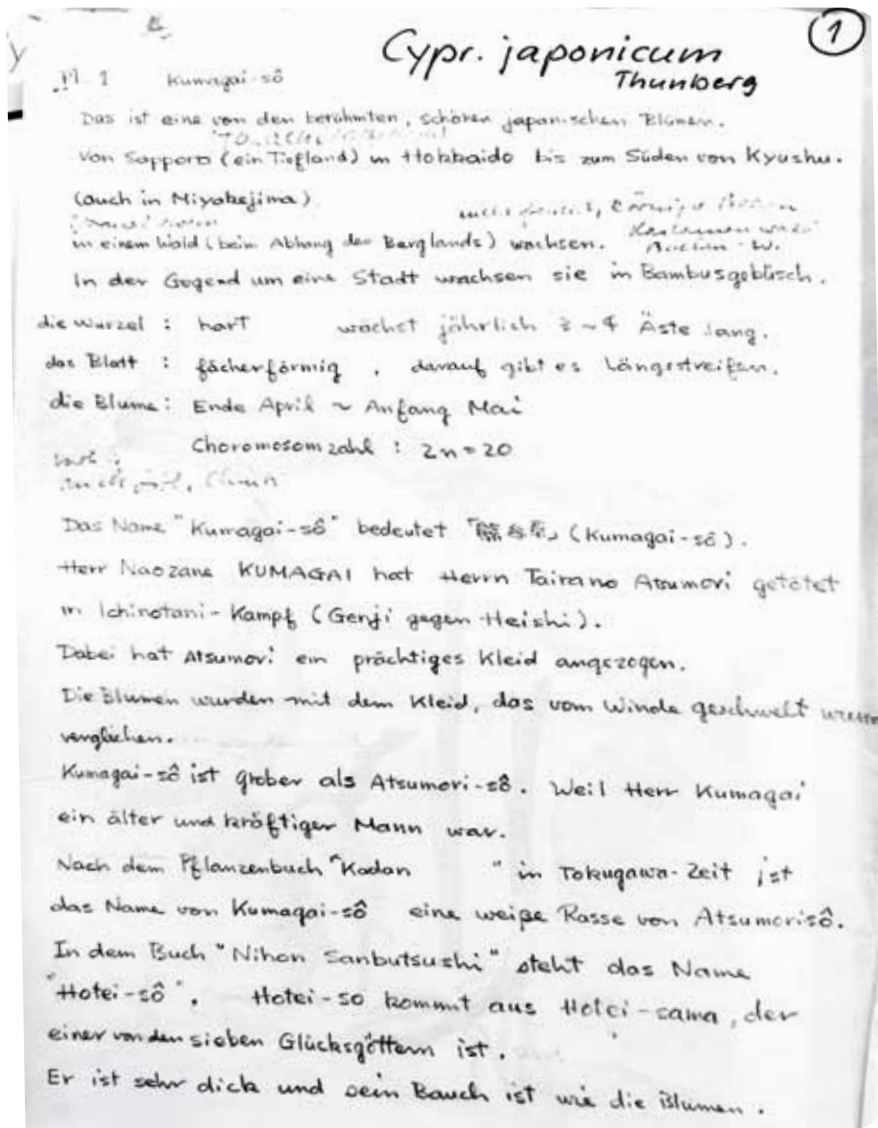 1
Cypr. japonicum
Thunberg
Pl. 1 Kumagai-sô
Das ist eine von den berühmten, schönen japanischen Blumen.
Von Sapporo (ein Tiefland) in Hokkaido bis zum Süden von Kyushu.
(auch in Miyakejima)
in einem Wald (beim Abhang des Berglands) wachsen.
In der Gegend um eine Stadt wachsen sie in Bambusgebüsch.
die Wurzel : hart wächst jährlich 3 ~ 4 Äste lang.
das Blatt : fächerförmig , darauf gibt es Längsstreifen.
die Blume : Ende April ~ Anfang Mai
Choromosomzahl : 2n = 20
Das Name "Kumagai-sô" bedeutet 「熊谷草」 (Kumagai-sô).
Herr Naozane KUMAGAI hat Herrn Tairano Atsumori getötet
in Ichinotani-Kampf (Genji gegen Heishi).
Dabei hat Atsumori ein prächtiges Kleid angezogen.
Die Blumen wurden mit dem Kleid, das vom Winde geschwelt
verglichen.
Kumagai-sô ist grober als Atsumori-sô. Weil Herr Kumagai
ein älter und kräftiger Mann war.
Nach dem Pflanzenbuch "Kadan " in Tokugawa-Zeit ist
das Name von Kumagai-sô eine weiße Rasse von Atsumorisô.
In dem Buch "Nihon Sanbutsushi" steht das Name
"Hotei-sô". Hotei-so kommt aus Hotei-sama, der
einer von den sieben Glücksgöttern ist.
Er ist sehr dick und sein Bauch ist wie die Blumen.